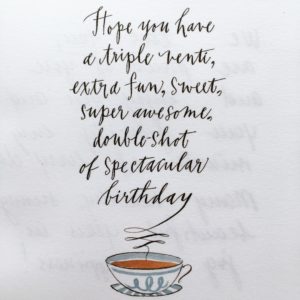 Hope you have
a triple venti,
extra fun, sweet,
super awesome,
double-shot
of spectacular
birthday